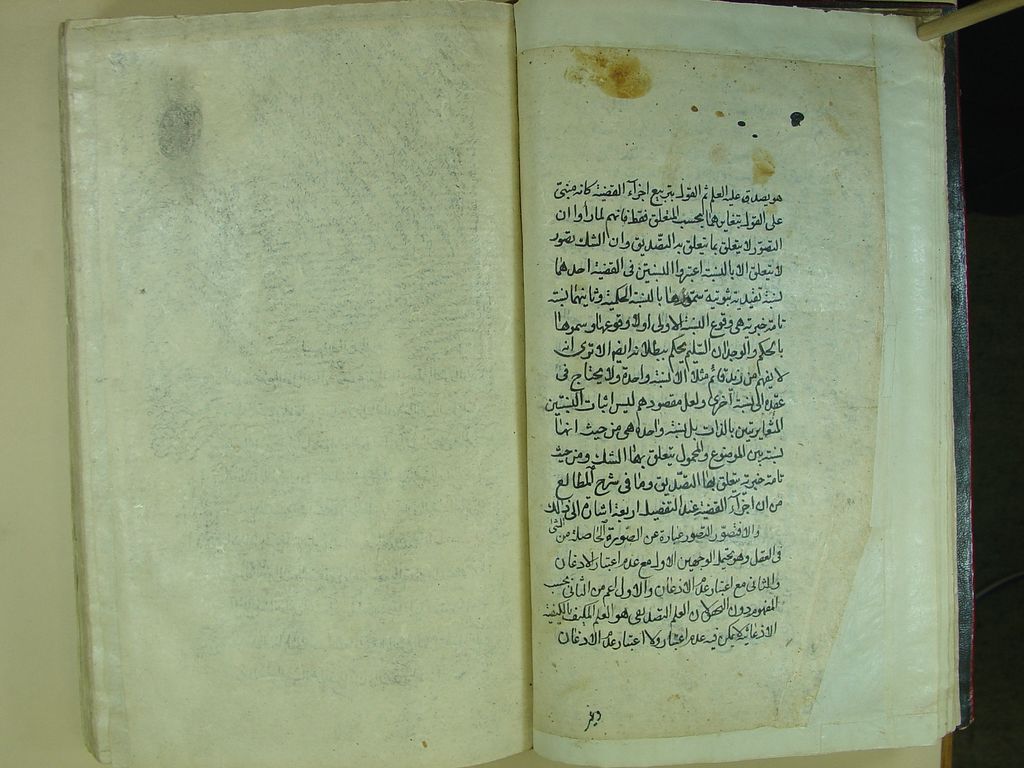 هو يصدق عليه العلم ثم القول بتربيع اجزآء القضية كانه مبتنى
على القول بتغايرهما بحسب المتعلق فقط فانهم لما رأوا ان
التصور لا يتعلق بما تتعلق به التصديق وان الشك تصور
لا يتعلق الا بالنسبة اعتبروا النسبتين فى القضية احدهما
نسبة تقييدية ثبوتية سموها بالنسبة الحكمية وثانيهما نسبة
تامة خبرية هى وقوع النسبة الاولى او لا وقوعها وسموها
بالحكم والوجدان السليم يحكم ببطلانه ايضا الا ترى انه
لا يفهم من زيد قائم مثلا الا نسبة واحدة ولا يحتاج فى
عقده الى نسبة اخرى ولعل مقصودهم ليس اثبات النسبتين
المتغايرتين بالذات بل نسبة واحدة هى من حيث انها
نسبة بين الموضوع والمحمول يتعلق بها الشك ومن حيث
تامة خبرية يتعلق بها التصديق وما فى شرح المطالع
من ان اجزآء القضية عند التفصيل اربعة اشارة الى ذلك
والا فتصور التصور عبارة عن الصورة الحاصلة من الشئ
فى العقل وهو يحتمل الوجهين الاول مع عدم اعتبار الاذعان
والثانى مع اعتبار عدم الاذعان والاول اعم من الثانى بحسب
المفهوم دون لان العلم التصديقى هو العلم المكيف بالكيفية
الاذعانية لا يمكن فيه عدم اعتبار ولا اعتبار عدم الاذعان